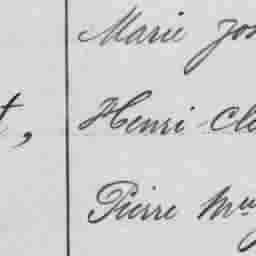 Marie Jos
t, Henri Cle
Pierre Mu